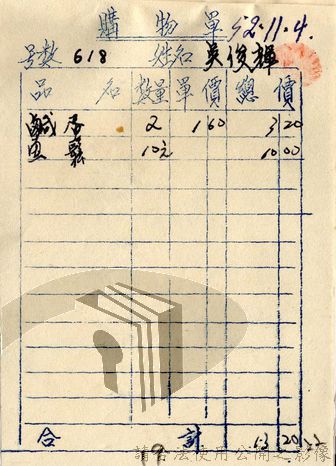 購物單 52.11.4.
号数 618 姓名 吳俊輝
品名 数量 單價 總價
鹹 2 1 60 3 20
魚鬆 10元 10 00
合計 13 20
請合法使用公開之影像